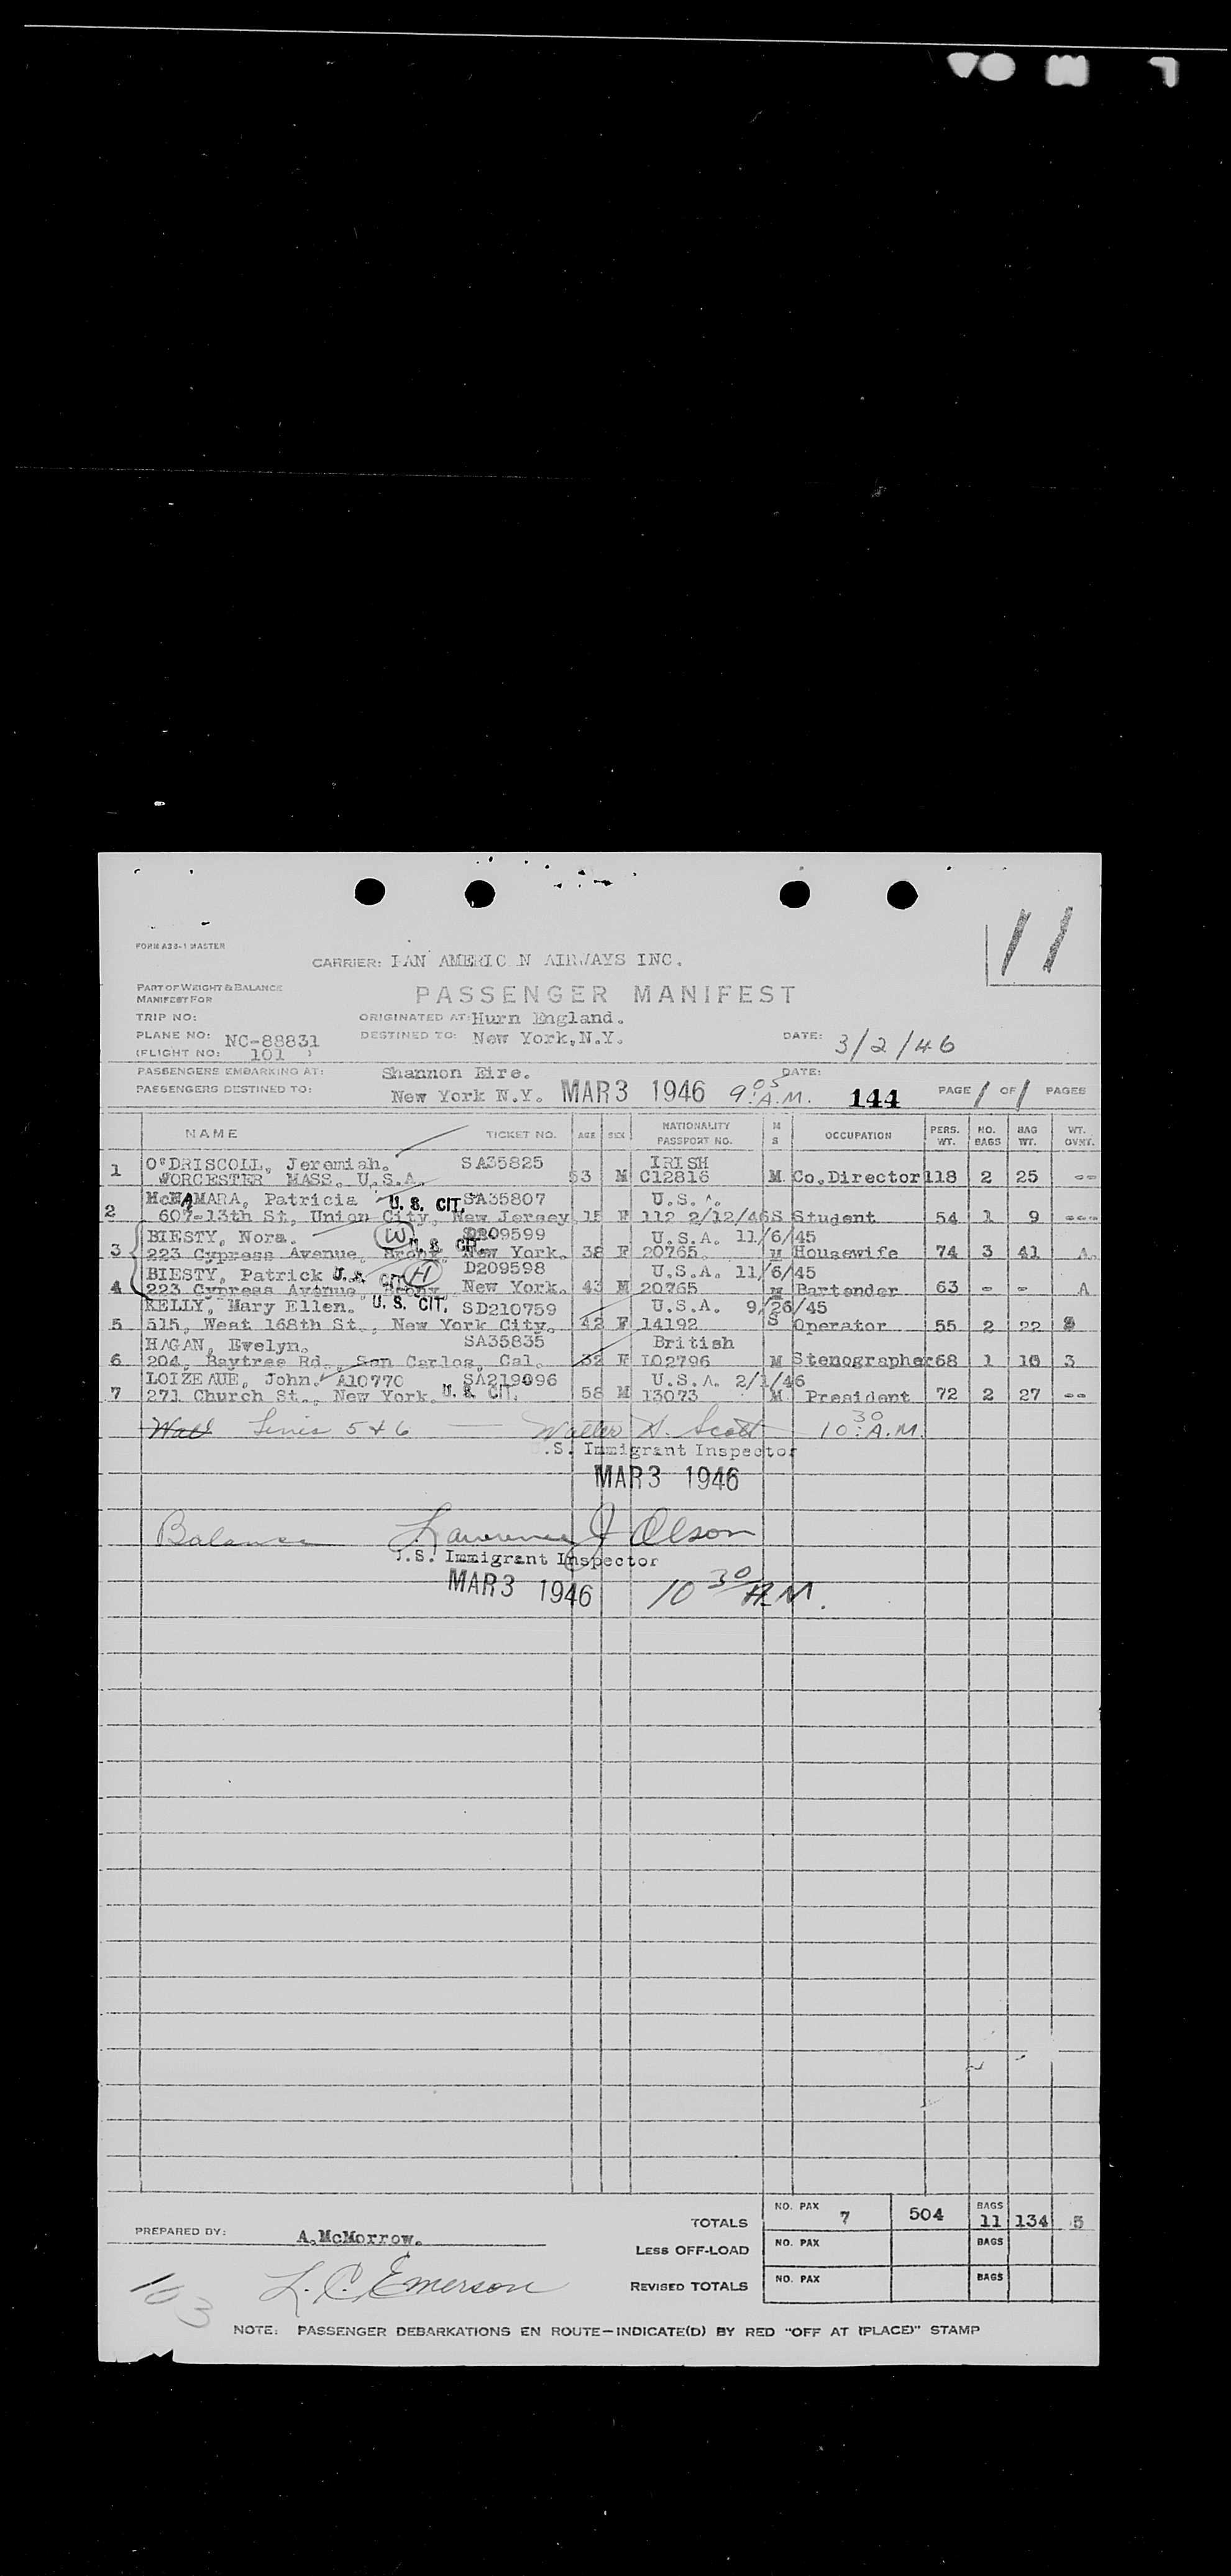 11
FORM A38-1 MASTER
CARRIER: PAN AMERIC N AIRWAYS INC.
PART OF WEIGHT & BALANCE
MANIFEST FOR
PASSENGER MANIFEST
TRIP NO:
ORIGINATED AT: Hurn England.
PLANE NO: NC-88831
DESTINED TO: New York,N.Y.
DATE: 3/2/46
(FLIGHT NO: 101 )
PASSENGERS EMBARKING AT: Shannon Eire.
DATE:
PASSENGERS DESTINED TO: New York N.Y. MAR 3 1946 9:05 A.M. 144 PAGE 1 OF 1 PAGES
NAME TICKET NO. AGE SEX NATIONALITY PASSPORT NO. M S OCCUPATION PERS. WT. NO. BAGS BAG WT. WT. OVNT.
1 O'DRISCOLL, Jeremiah. SA35825 IRISH
WORCESTER MASS. U.S.A. 53 M C12816 M Co.Director 118 2 25 --
McNAMARA, Patricia U. S. CIT. SA35807 U.S.A.
2 607-13th St, Union City, New Jersey 15 F 112 2/12/46 S Student 54 1 9 ---
BIESTY, Nora. W U. S. CIT. D209599 U.S.A. 11/6/45
3 223 Cypress Avenue, Bronx, New York. 38 F 20765 M Housewife 74 3 41 A.
BIESTY, Patrick U. S. CIT. H D209598 U.S.A. 11/6/45
4 223 Cypress Avenue, Bronx, New York. 43 M 20765 M Bartender 63 - - A
KELLY, Mary Ellen. U. S. CIT. SD210759 U.S.A. 9/26/45
5 515, West 168th St., New York City. 42 F 14192 S Operator 55 2 22
HAGAN, Evelyn. SA35835 British
6 204, Baytree Rd., San Carlos, Cal. 32 F IO2796 M Stenographer 68 1 10 3
LOIZEAUE, John. A10770 SA219096 U.S.A. 2/1/46
7 271 Church St., New York. U. S. CIT. 58 M 13073 M President 72 2 27 --
Lines 5 & 6 Walter H. Scott 10:30 A.M.
.S. Immigrant Inspector
MAR 3 1946
Balance Lawrence J Olson
U.S. Immigrant Inspector
MAR 3 1946 10 30 A.M.
TOTALS NO. PAX 7 504 BAGS 11 134 5
PREPARED BY: A.McMorrow.
LESS OFF-LOAD NO. PAX BAGS
L. C. Emerson
REVISED TOTALS NO. PAX BAGS
103
NOTE: PASSENGER DEBARKATIONS EN ROUTE—INDICATE(D) BY RED "OFF AT (PLACE)" STAMP